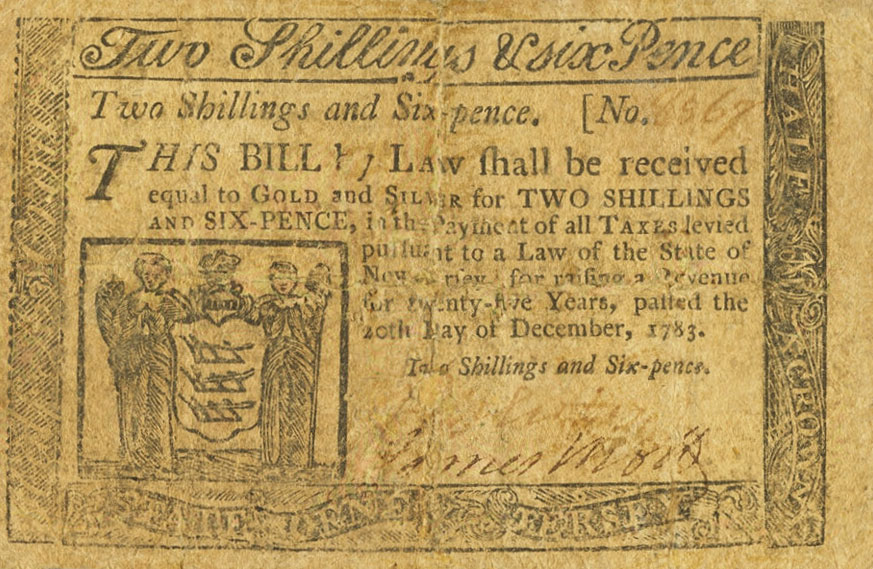 Two Shillings & six Pence
Two Shillings and Six-pence. [No.
THIS BILL by LAW ſhall be received
equal to GOLD and SILVER for TWO SHILLINGS
AND SIX-PENCE, in the Payment of all TAXES levied
purſuant to a Law of the State of
New-Jerſey, for raiſing a Revenue
for twenty-five Years, paſſed the
20th Day of December, 1783.
Two Shillings and Six-pence.
James Mott
STATE OF NEW JERSEY
HALF A CROWN